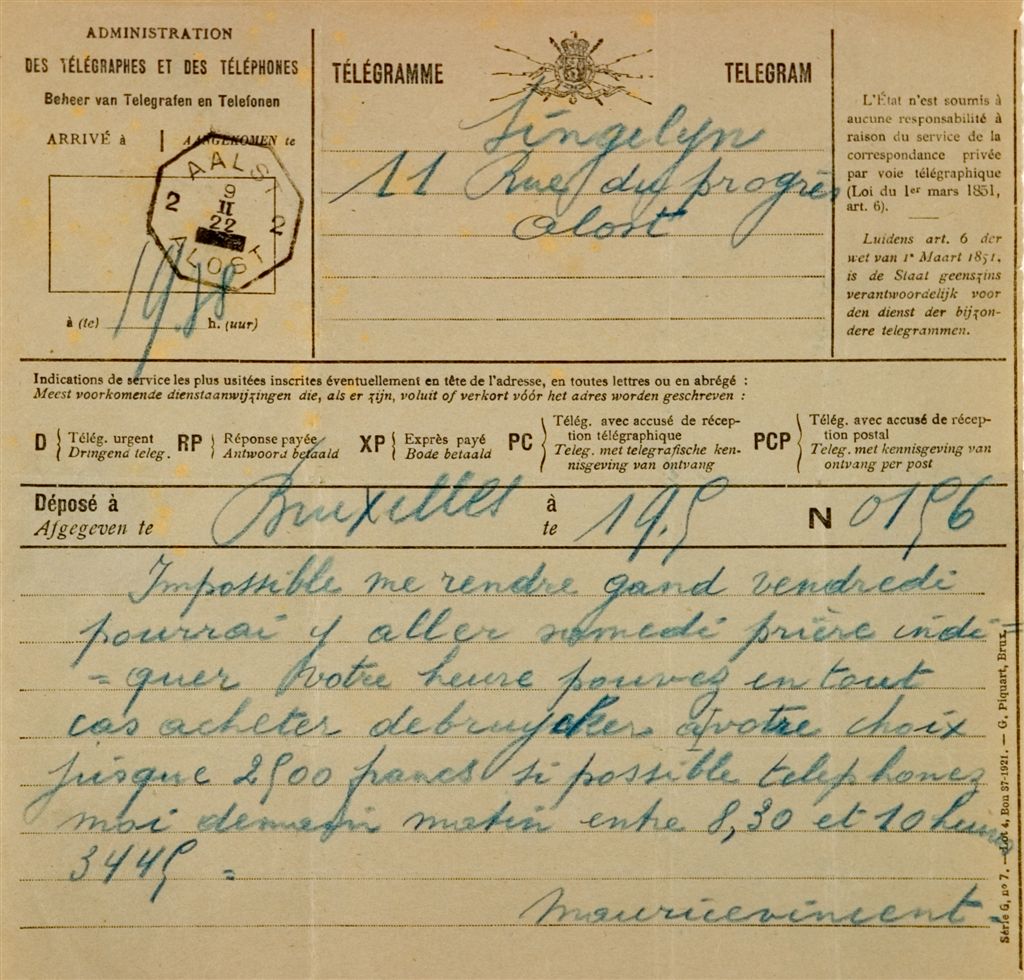 ADMINISTRATION
DES TÉLÉGRAPHES ET DES TÉLÉPHONES
Beheer van Telegrafen en Telefonen
ARRIVÉ à | AANGEKOMEN te
AALST
2 9 2
II
22
ALOST
19.18
à (te) h. (uur)
TÉLÉGRAMME TELEGRAM
Singelyn
11 Rue du progrès
Alost
L'État n'est soumis à
aucune responsabilité à
raison du service de la
correspondance privée
par voie télégraphique
(Loi du 1er mars 1851,
art. 6).
Luidens art. 6 der
wet van 1e Maart 1851,
is de Staat geenszins
verantwoordelijk voor
den dienst der bijzon-
dere telegrammen.
Indications de service les plus usitées inscrites éventuellement en tête de l'adresse, en toutes lettres ou en abrégé :
Meest voorkomende dienstaanwijzingen die, als er zijn, voluit of verkort vóór het adres worden geschreven :
D { Télég. urgent
Dringend teleg.
RP { Réponse payée
Antwoord betaald
XP { Exprès payé
Bode betaald
PC { Télég. avec accusé de récep-
tion télégraphique
Teleg. met telegrafische ken-
nisgeving van ontvang
PCP { Télég. avec accusé de récep-
tion postal
Teleg. met kennisgeving van
ontvang per post
Déposé à Bruxelles à 19.5 N 0156
Afgegeven te te
Impossible me rendre gand vendredi
pourrai y aller samedi prière indi=
=quer votre heure pouvez en tout
cas acheter debruycker a votre choix
jusque 2500 francs si possible telephonez
moi demain matin entre 8,30 et 10 heures
3445 =
Mauricevincent =
Série G, nº 7. — Lot 4, Bon 37-1921. — G. Piquart, Brux.